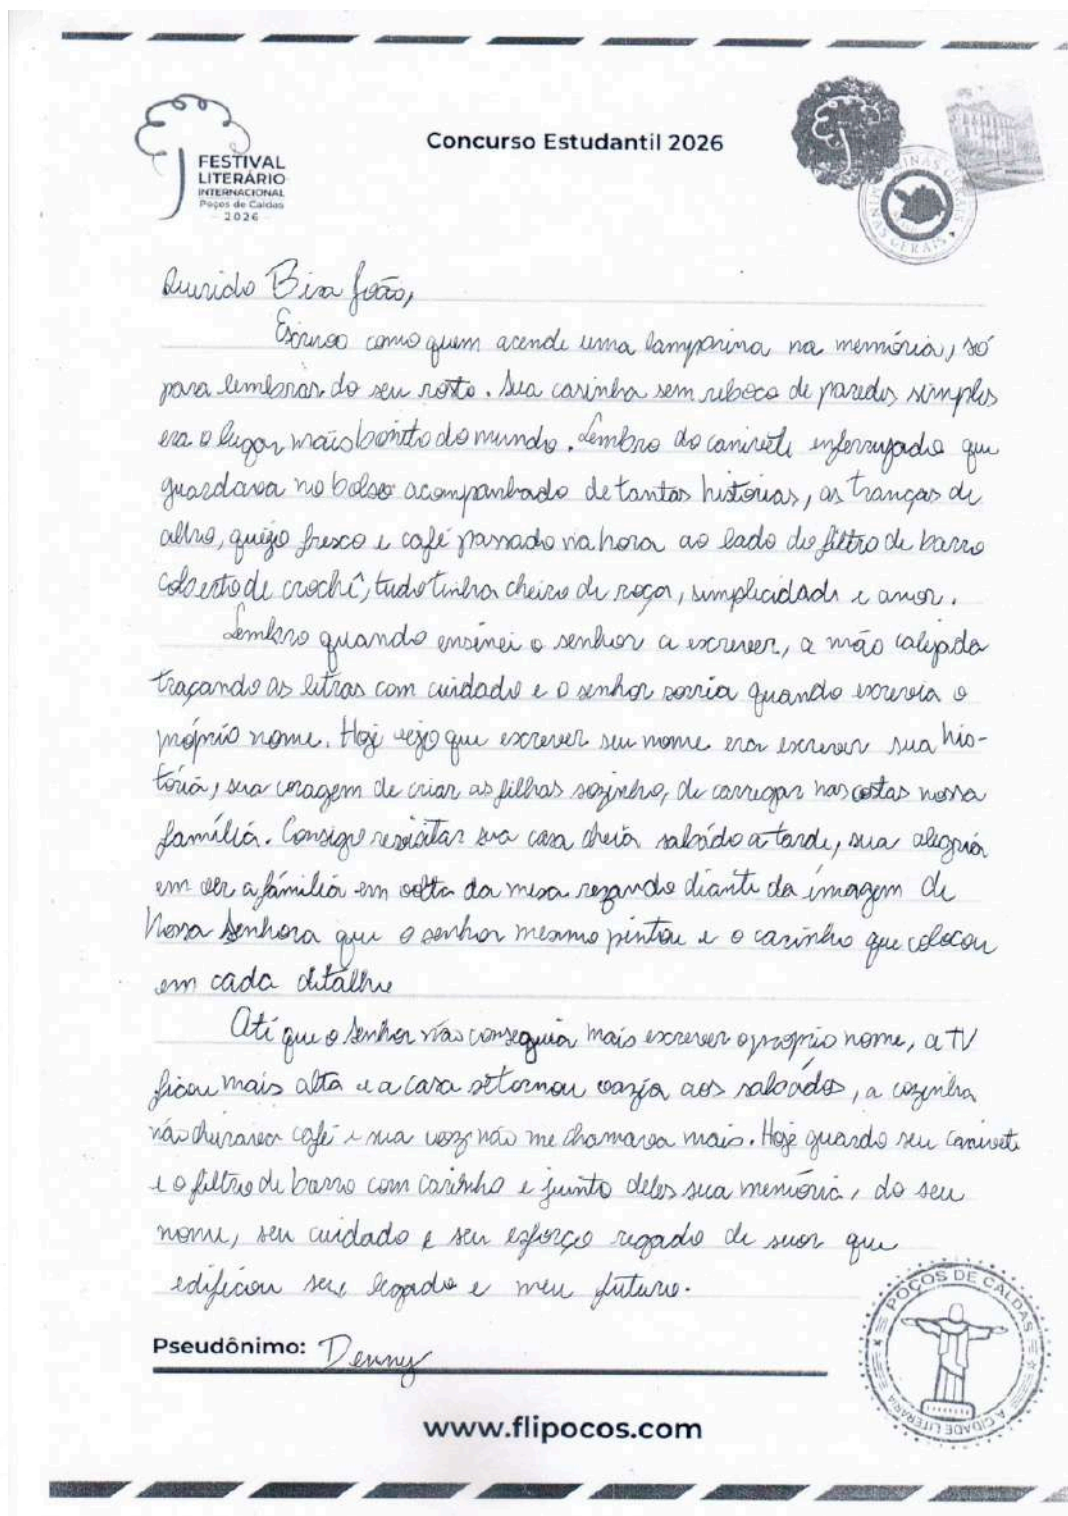 FESTIVAL
LITERÁRIO
INTERNACIONAL
Poços de Caldas
2026
Concurso Estudantil 2026
MINAS GERAIS
MINAS GERAIS
Querido Bisa João,
Escrevo como quem acende uma lamparina na memória, só
para lembrar do seu rosto. Sua casinha sem reboco de paredes simples
era o lugar mais bonito do mundo. Lembro do canivete enferrujado que
guardava no bolso acompanhado de tantas histórias, as tranças de
alho, queijo fresco e café passado na hora ao lado do filtro de barro
coberto de crochê, tudo tinha cheiro de roça, simplicidade e amor.
Lembro quando ensinei o senhor a escrever, a mão calejada
traçando as letras com cuidado e o senhor sorria quando escrevia o
próprio nome. Hoje vejo que escrever seu nome era escrever sua his-
tória, sua coragem de criar as filhas sozinho, de carregar nas costas nossa
família. Consigo revisitar sua casa cheia sabádo a tarde, sua alegria
em ver a família em volta da mesa rezando diante da imagem de
Nossa Senhora que o senhor mesmo pintou e o carinho que colocou
em cada detalhe
Até que o Senhor não conseguia mais escrever o proprio nome, a TV
ficou mais alta e a casa retornou vazia aos sabádos, a cozinha
não cheirava café e sua voz não me chamava mais. Hoje guardo seu canivete
e o filtro de barro com carinho e junto deles sua memória, do seu
nome, seu cuidado e seu esforço regado de suor que
edificou seu legado e meu futuro.
Pseudônimo: Denny
POÇOS DE CALDAS
A CIDADE LITERÁRIA
www.flipocos.com